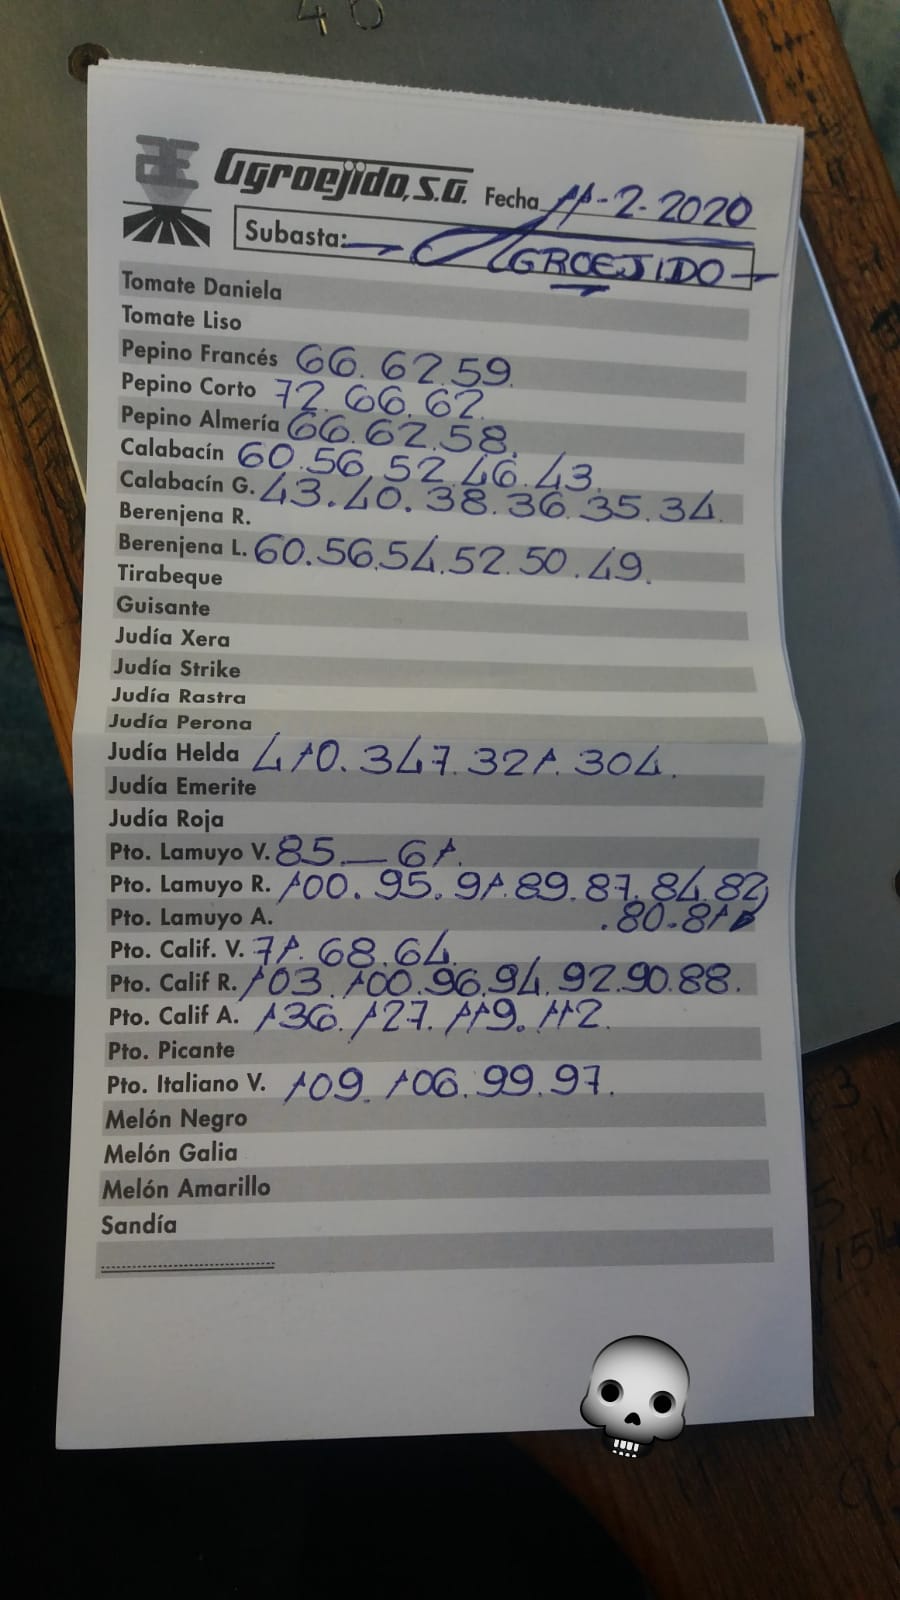 46
Agroejido, S.A. Fecha 11-2-2020
Subasta: AGROEJIDO
Tomate Daniela
Tomate Liso
Pepino Francés 66.62.59.
Pepino Corto 72.66.62.
Pepino Almería 66.62.58.
Calabacín 60.56.52.46.43.
Calabacín G. 43.40.38.36.35.34.
Berenjena R.
Berenjena L. 60.56.54.52.50.49.
Tirabeque
Guisante
Judía Xera
Judía Strike
Judía Rastra
Judía Perona
Judía Helda 410.347.321.304.
Judía Emerite
Judía Roja
Pto. Lamuyo V. 85.—61.
Pto. Lamuyo R. 100.95.91.89.87.84.82
Pto. Lamuyo A. .80.81
Pto. Calif. V. 71.68.64.
Pto. Calif R. 103.100.96.94.92.90.88.
Pto. Calif A. 136.127.119.112.
Pto. Picante
Pto. Italiano V. 109.106.99.97.
Melón Negro
Melón Galia
Melón Amarillo
Sandía